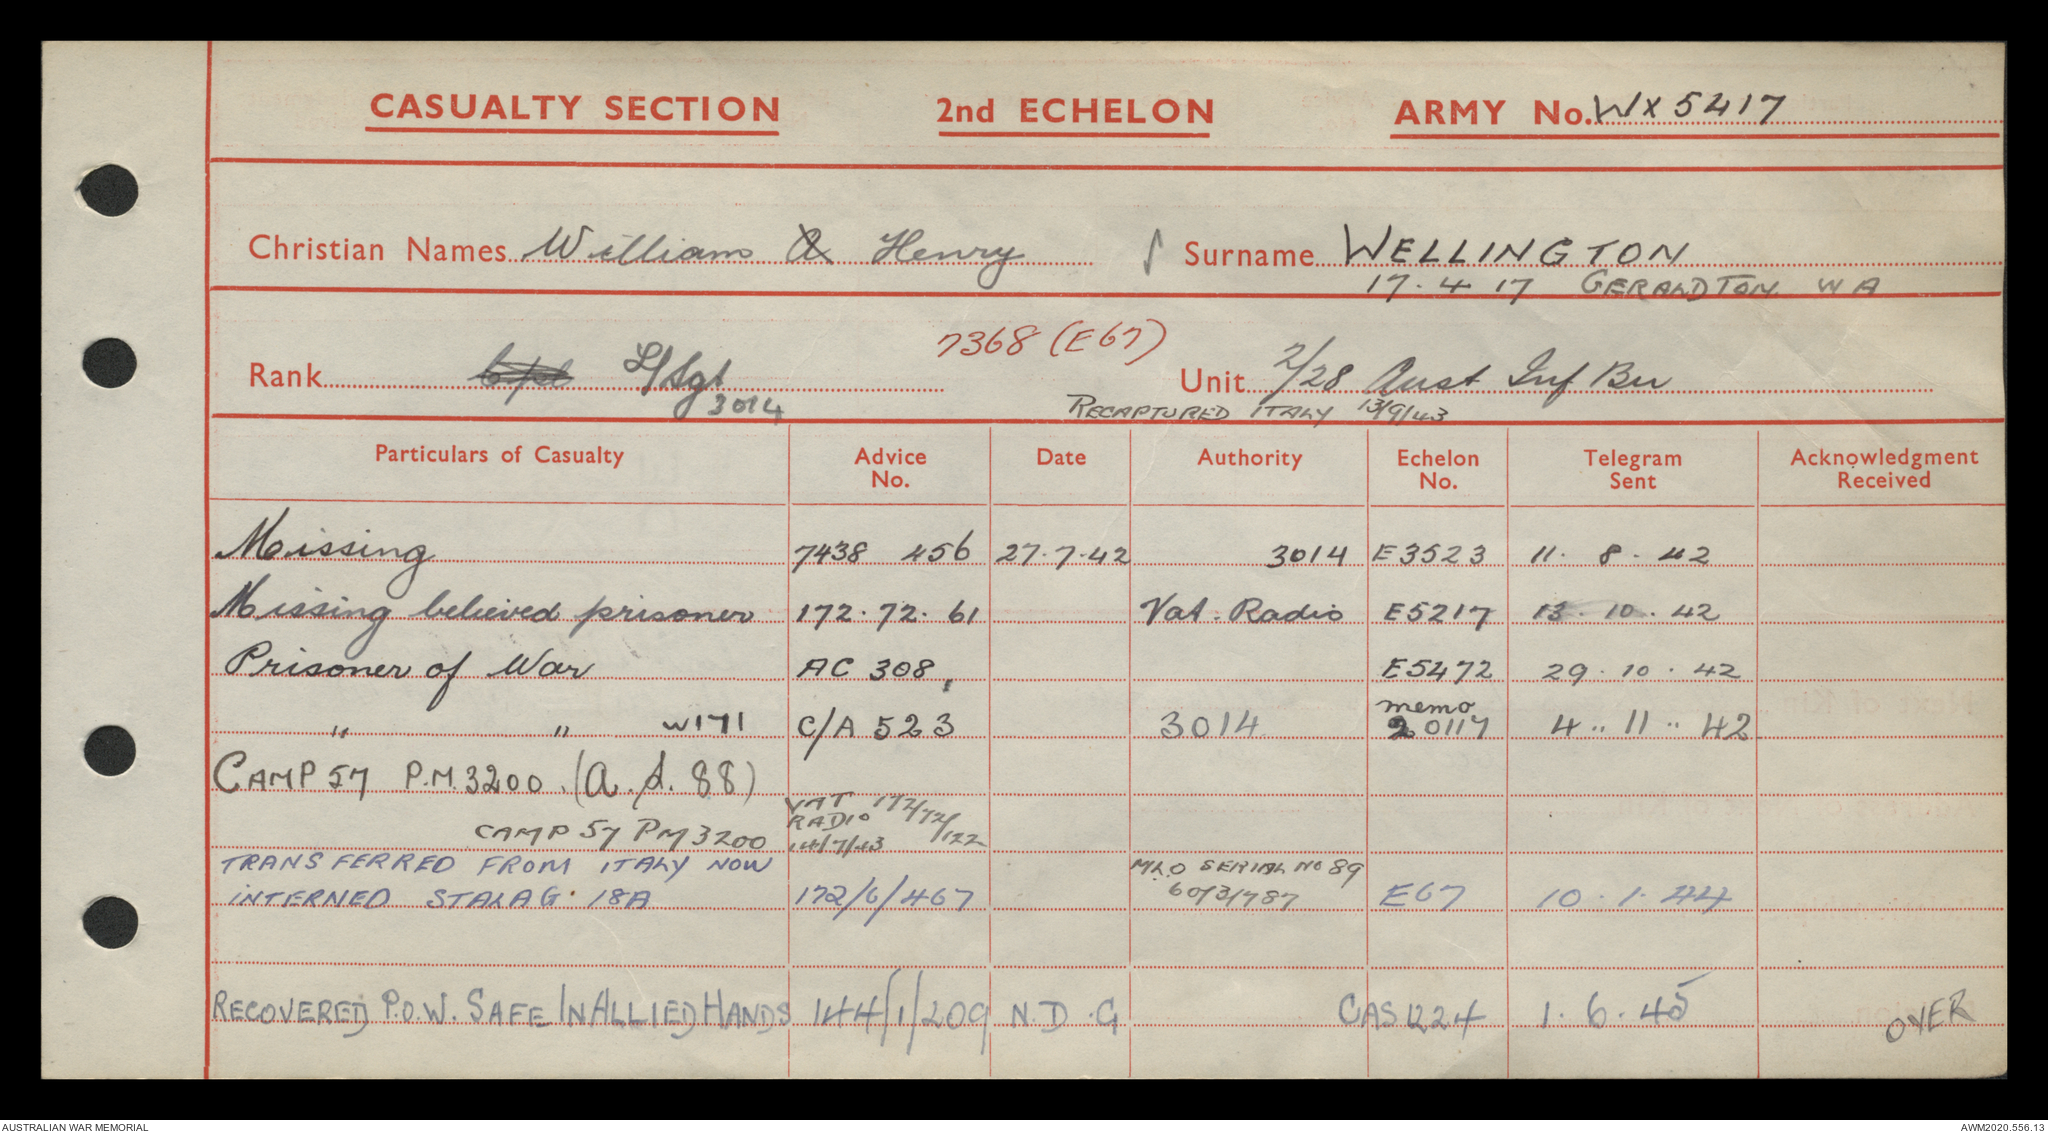 CASUALTY SECTION 2nd ECHELON ARMY No. WX5417
Christian Names William A Henry Surname WELLINGTON
17.4.17 GERALDTON WA
7368 (E67)
Rank Cpl L/Sgt Unit 2/28 Aust Inf Bn
3014 RECAPTURED ITALY 13/9/43
Particulars of Casualty Advice No. Date Authority Echelon No. Telegram Sent Acknowledgment Received
Missing 7438 456 27.7.42 3014 E3523 11.8.42
Missing believed prisoner 172.72.61 Vat. Radio E5217 13.10.42
Prisoner of War AC 308, E5472 29.10.42
memo
" " W171 C/A 523 3014 20117 4..11..42
CAMP 57 P.M. 3200. (A.d. 88)
CAMP 57 PM 3200 VAT RADIO 14/7/43 172/72/122
TRANSFERRED FROM ITALY NOW MLO SERIAL No 89
INTERNED STALAG 18A 172/6/467 60/3/787 E67 10.1.44
RECOVERED P.O.W. SAFE IN ALLIED HANDS 144/1/209 N.D.G CAS1224 1.6.45
OVER
AUSTRALIAN WAR MEMORIAL AWM2020.556.13